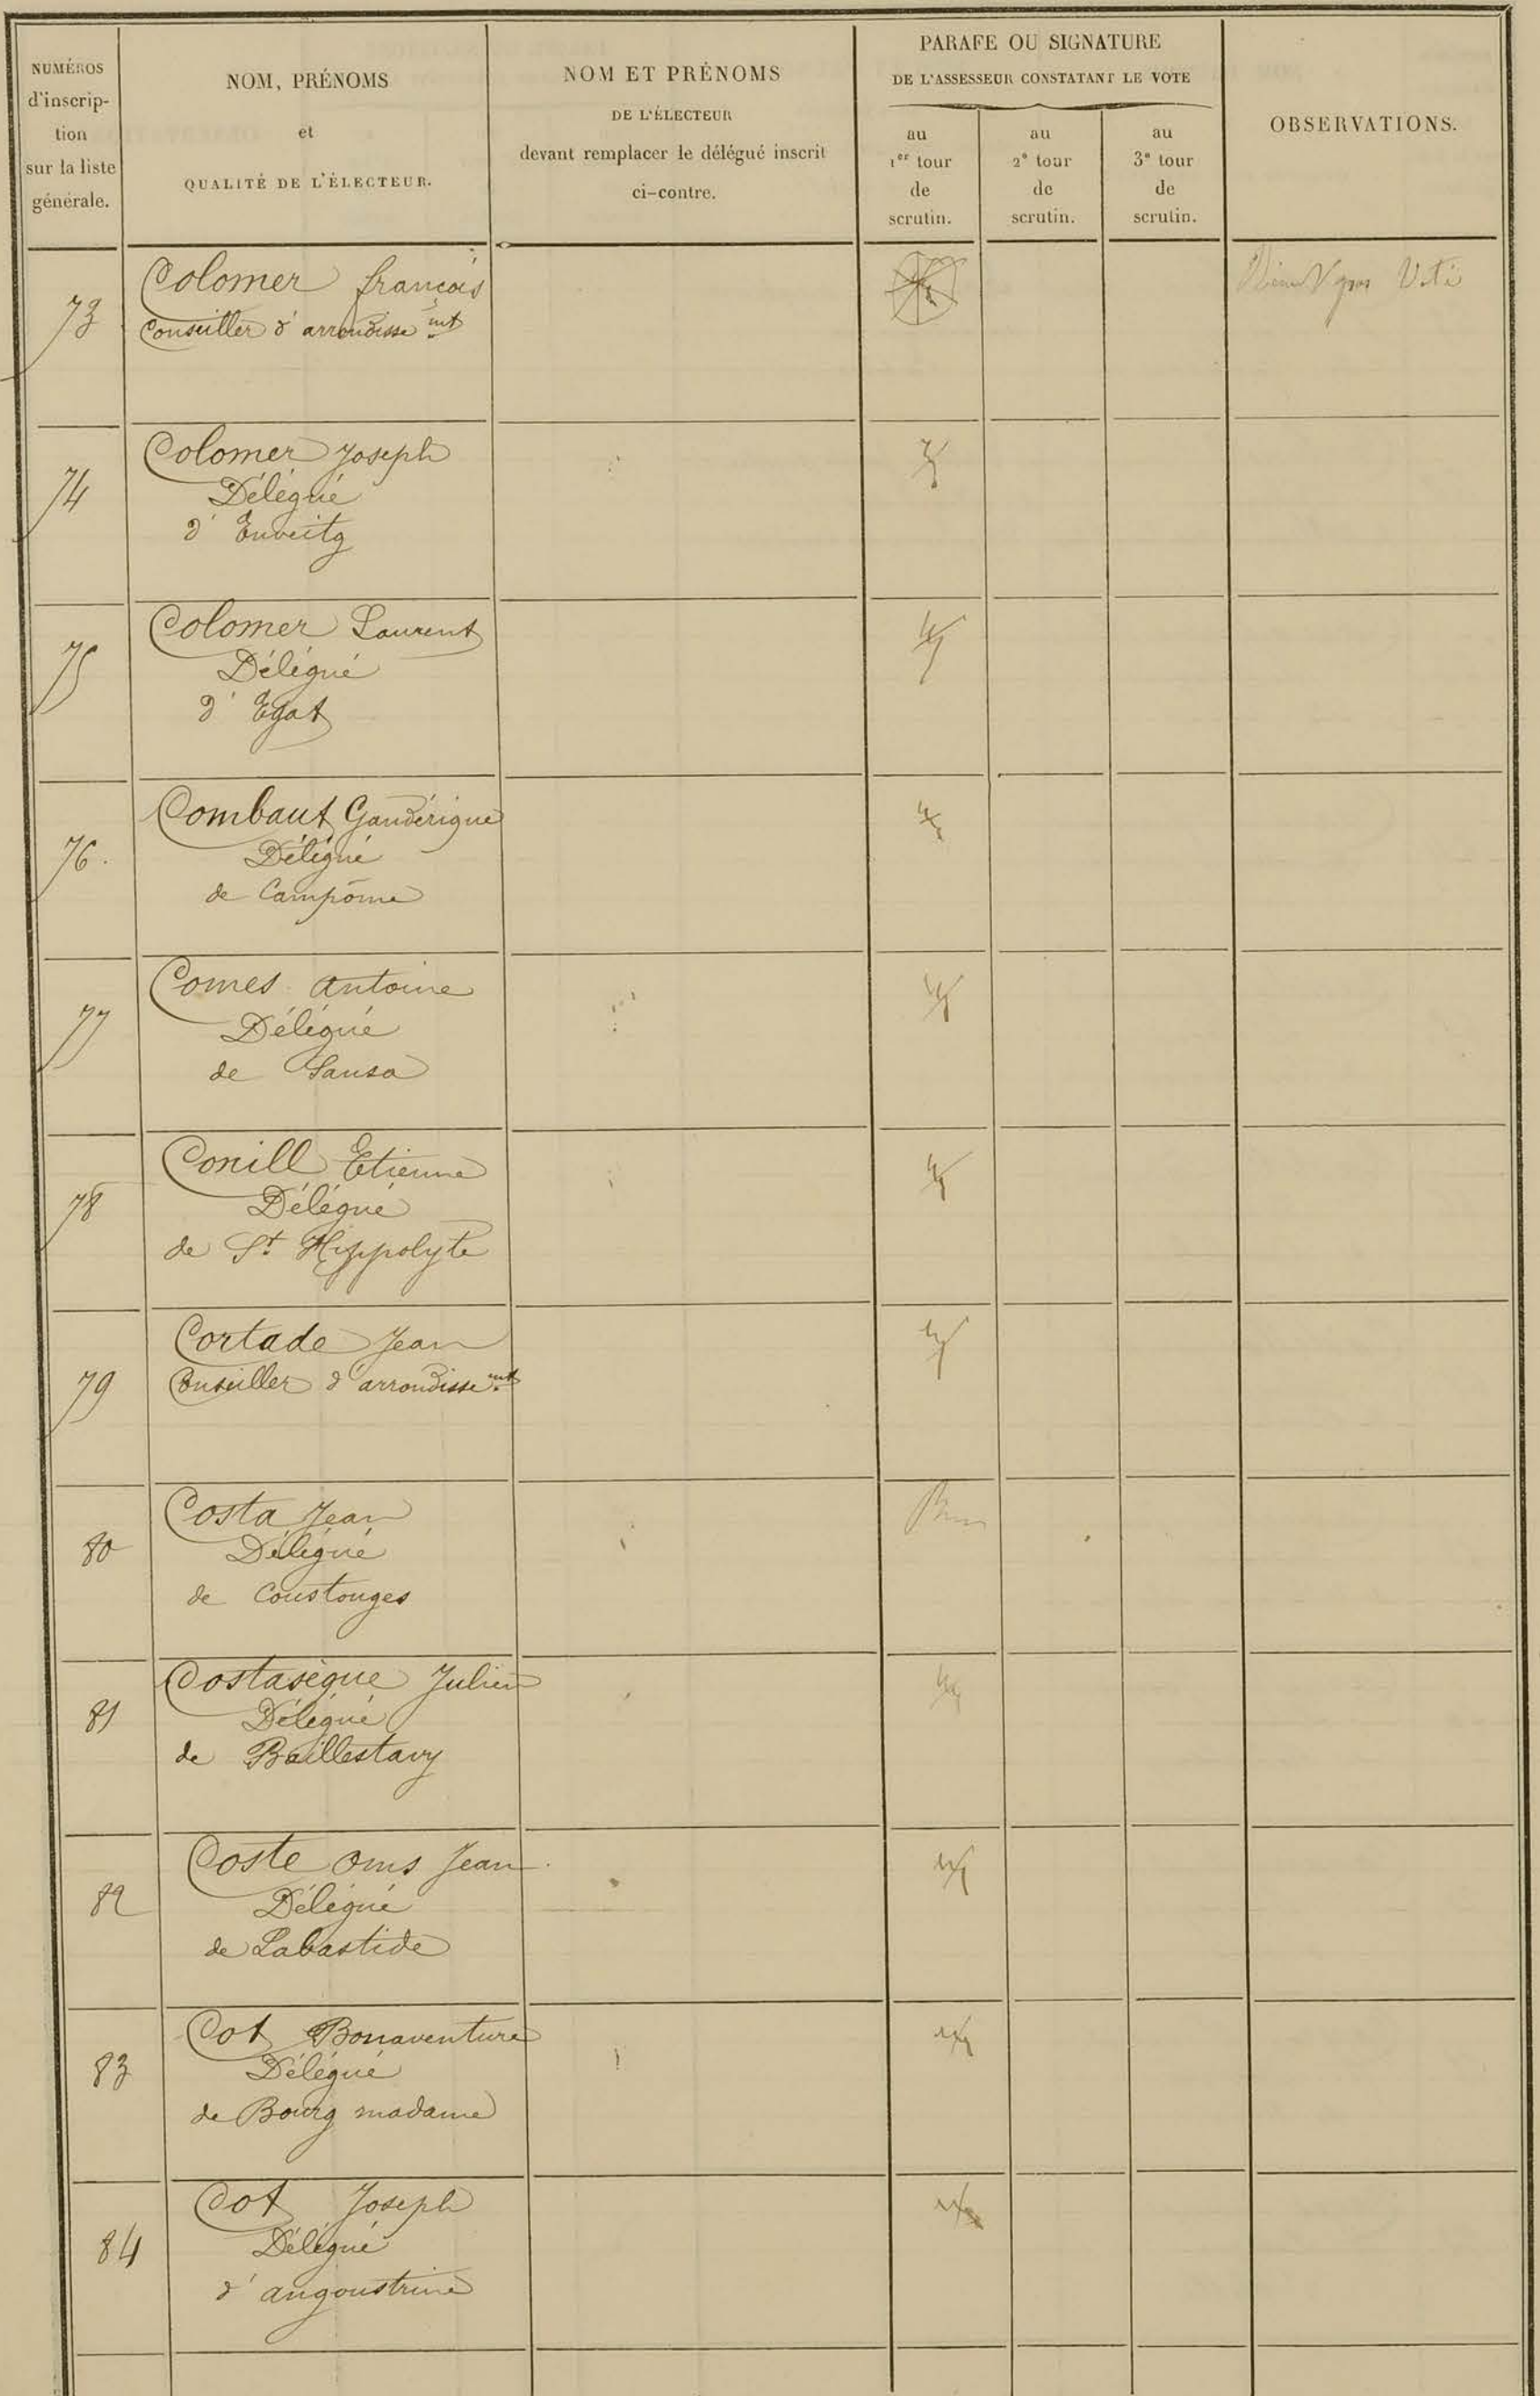 NUMÉROS
d'inscrip-
tion
sur la liste
générale.
NOM, PRÉNOMS
et
QUALITÉ DE L'ÉLECTEUR.
NOM ET PRÉNOMS
DE L'ÉLECTEUR
devant remplacer le délégué inscrit
ci-contre.
PARAFE OU SIGNATURE
DE L'ASSESSEUR CONSTATANT LE VOTE
au
1er tour
de
scrutin.
au
2e tour
de
scrutin.
au
3e tour
de
scrutin.
OBSERVATIONS.
73
Colomer françois
Conseiller d'arrondissemt
pas Voté
74
Colomer Joseph
Délégué
d'Enveitg
75
Colomer Laurent
Délégué
d'Egat
76.
Combaut Gandérique
Délégué
de Campôme
77
Comes Antoine
Délégué
de Sansa
78
Conill Etienne
Délégué
de St Hippolyte
79
Cortade Jean
Conseiller d'arrondissemt
80
Costa Jean
Délégué
de Coustouges
81
Costasèque Julien
Délégué
de Baillestavy
82
Coste Oms Jean
Délégué
de Labastide
83
Cot Bonaventure
Délégué
de Bourg madame
84
Cot Joseph
Délégué
d'angoustrine